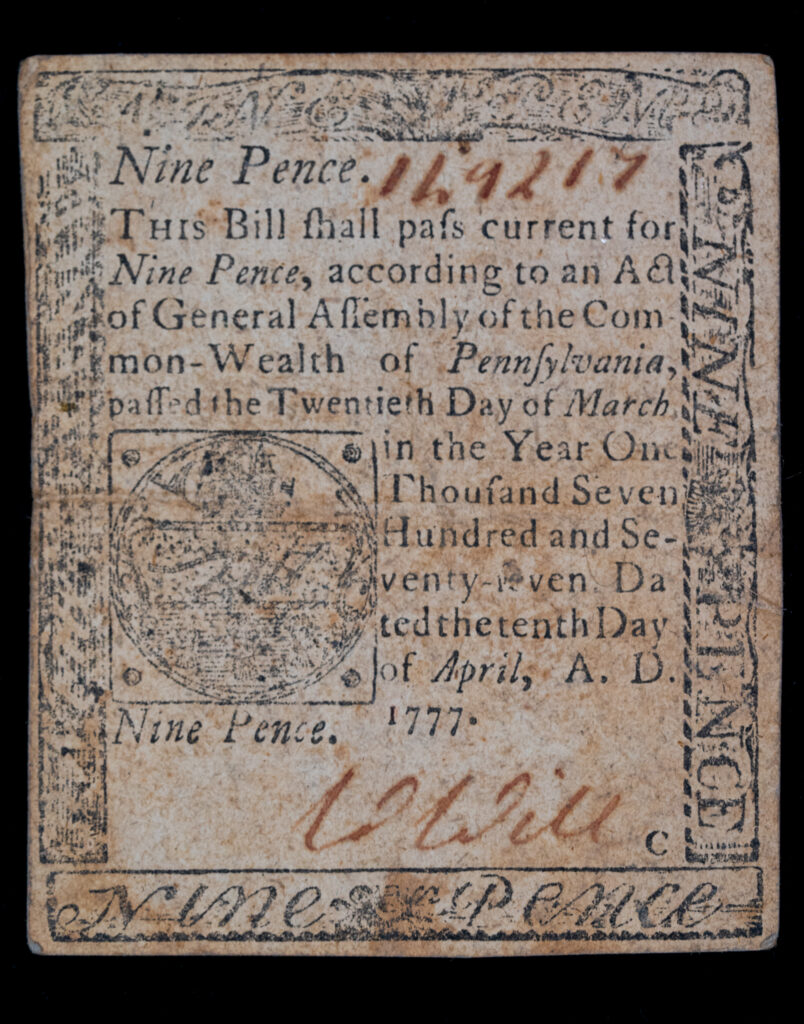 Nine Pence. 169217
THIS Bill ſhall paſs current for
Nine Pence, according to an Act
of General Aſſembly of the Com-
mon-Wealth of Pennſylvania,
paſſed the Twentieth Day of March
in the Year One
Thouſand Seven
Hundred and Se-
venty-ſeven. Da
ted the tenth Day
of April, A. D.
1777.
Nine Pence.
W Will
C
NINE PENCE
Nine Pence